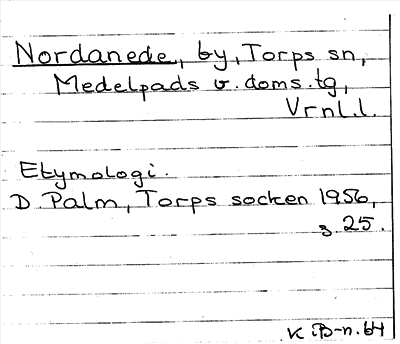 Nordanede, by, Torps sn,
Medelpads v. doms.tg,
Vrnl.l.
Etymologi.
D Palm, Torps socken 1956,
s. 25.
K iB-n. 64